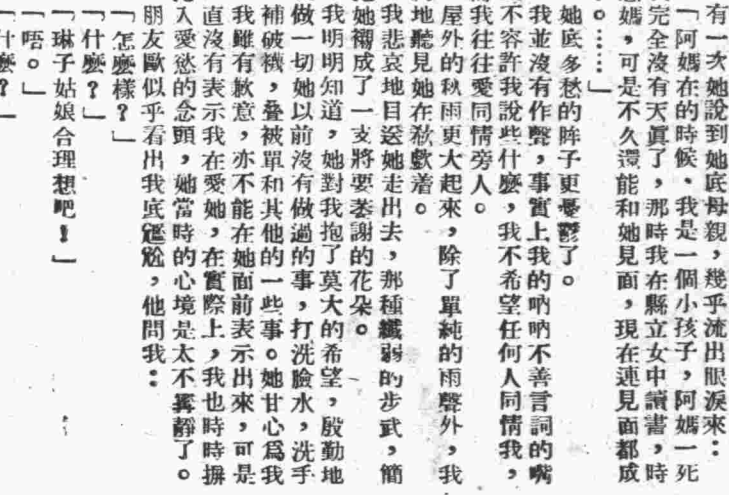 有一次她說到她底母親，幾乎流出眼淚來：
「阿媽在的時候、我是一個小孩子，阿媽一死
完全沒有天眞了，那時我在縣立女中讀書，時
媽，可是不久還能和她見面，現在連見面都成
。……」
她底多愁的眸子更憂鬱了。
我並沒有作聲，事實上我的吶吶不善言詞的嘴
不容許我說些什麽，我不希望任何人同情我，
我往往愛同情旁人。
屋外的秋雨更大起來，除了單純的雨聲外，我
地聽見她在欷歔着。
我悲哀地目送她走出去，那種纖弱的步武，簡
她襯成了一支將要萎謝的花朵。
我明明知道，她對我抱了莫大的希望，殷勤地
做一切她以前沒有做過的事，打洗臉水，洗手
補破襪，叠被單和其他的一些事。她甘心爲我
我雖有歉意，亦不能在她面前表示出來，可是
直沒有表示我在愛她，在實際上，我也時時摒
入愛慾的念頭，她當時的心境是太不寧靜了。
朋友歐似乎看出我底尷尬，他問我：
「怎麽樣？」
「什麽？」
「琳子姑娘合理想吧！」
「唔。」
「什麽？」